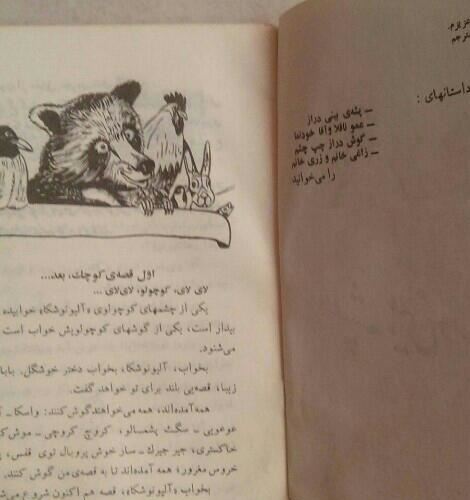 مترجم
داستانهای :
ــ پشه‌ی بینی دراز
ــ عمو ناقلا و آقا خودنما
ــ گوش دراز چپ چشم
ــ زاغی خانم و زری خانم
را می‌خوانید
اول قصه‌ی کوچك، بعد...
لای لای، کوچولو، لای‌لای ...
یکی از چشمهای کوچولوی «آلیونوشکا» خوابیده
بیدار است، یکی از گوشهای کوچولویش خواب است
می‌شنود.
بخواب، آلیونوشکا، بخواب دختر خوشگل. بابا
زیبا، قصه‌یی بلند برای تو خواهد گفت.
همه آمده‌اند، همه می‌خواهند گوش کنند: واسکا ــ
عوعویی ــ سگ پشمالو، کروچ کروچی ــ موش
خاکستری، جیر جیرك ــ سار خوش پر و بال توی قفس،
خروس مغرور؛ همه آمده‌اند تا به قصه‌ی من گوش کنند.
بخواب «آلیونوشکا»، قصه هم اکنون شروع می‌